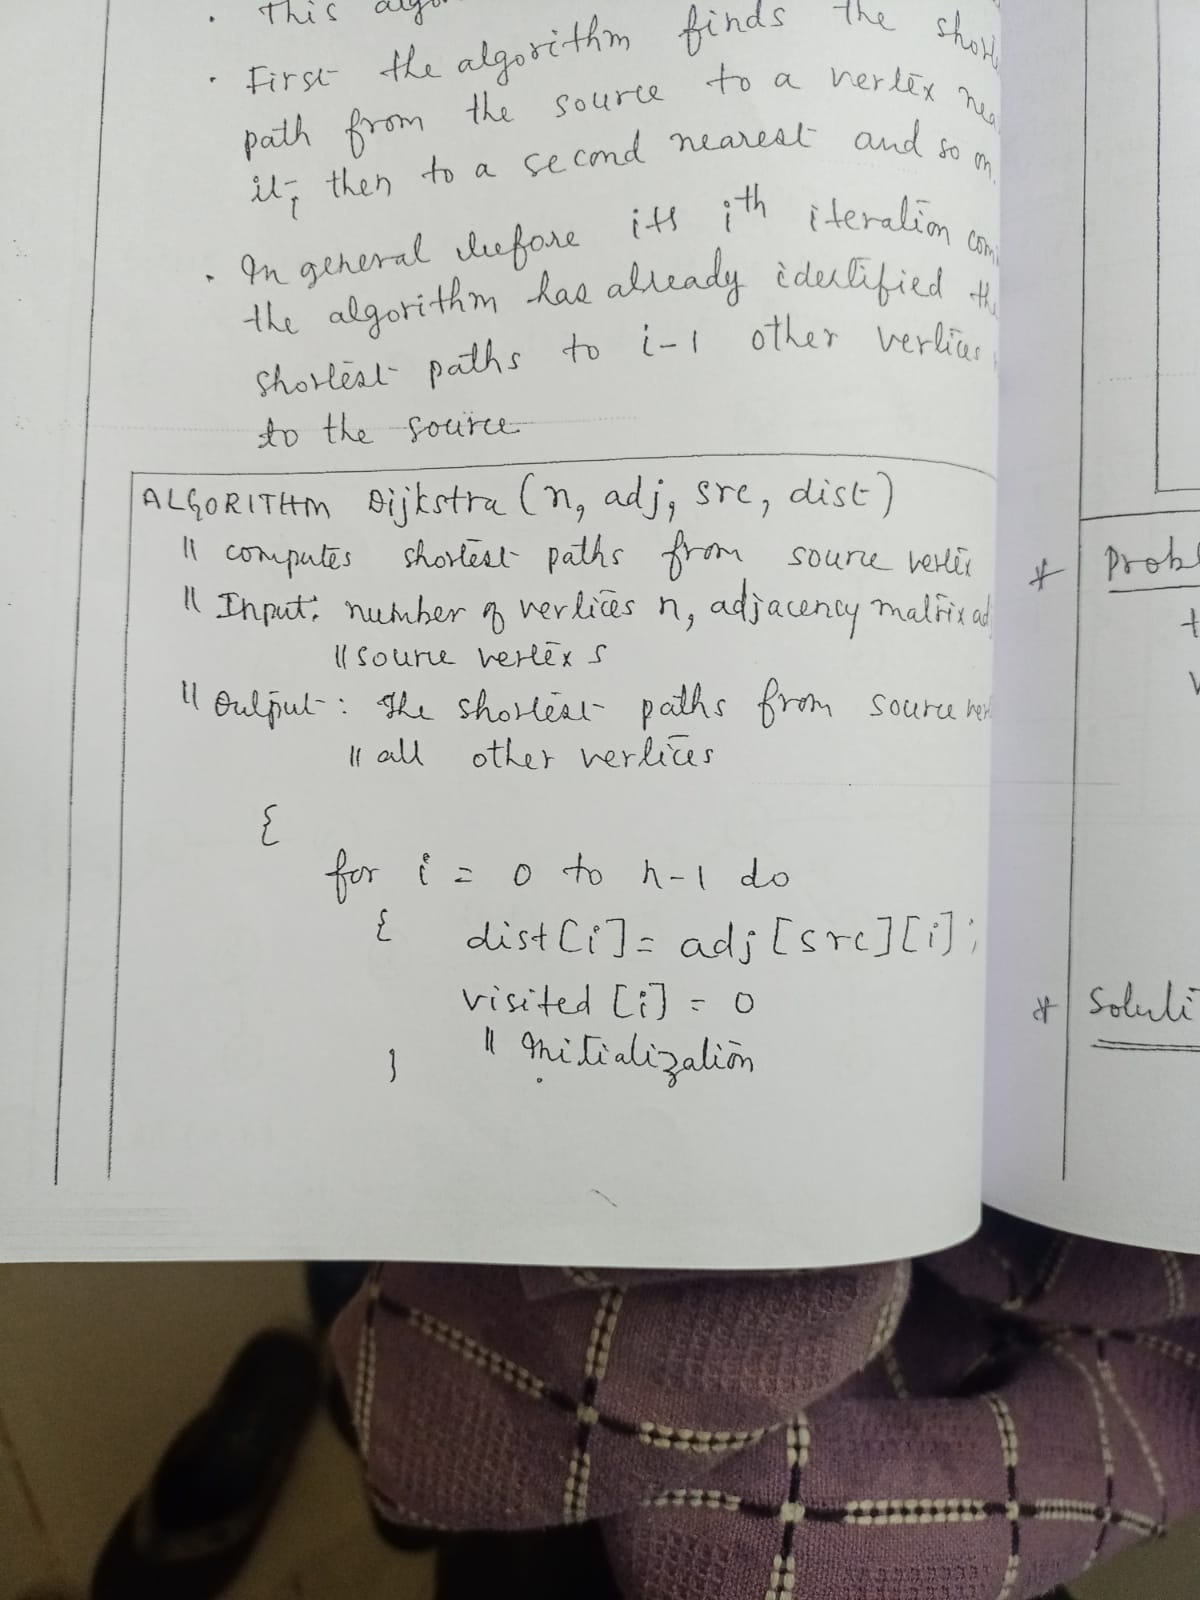 . This
. First the algorithm finds the
path from the source to a vertex
it, then to a second nearest and so on.
. In general before its ith iteration
the algorithm has already identified the
shortest paths to i-1 other vertices
to the source
ALGORITHM Dijkstra (n, adj, src, dist)
// computes shortest paths from source vertex
// Input: number of vertices n, adjacency matrix adj
// source vertex s
// Output: The shortest paths from source
// all other vertices
{
for i = 0 to n-1 do
{ dist[i] = adj[src][i];
visited [i] = 0
// Initialization
}
*
*